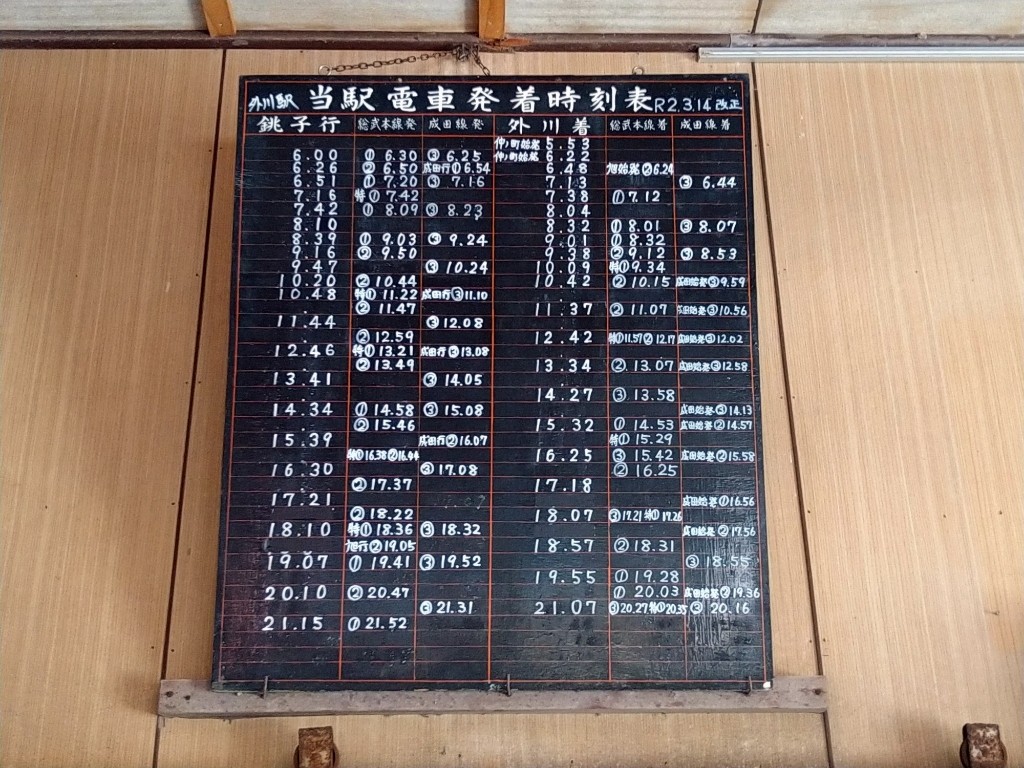 外川駅 当駅電車発着時刻表 R2.3.14 改正
銚子行 総武本線発 成田線発 外川着 総武本線着 成田線着
仲ノ町始発 5.53
6.00 ① 6.30 ③ 6.25 仲ノ町始発 6.22
6.26 ② 6.50 成田行① 6.54 6.48 旭始発 ② 6.24
6.51 ① 7.20 ③ 7.16 7.13 ③ 6.44
7.16 特① 7.42 7.38 ① 7.12
7.42 ① 8.09 ③ 8.23 8.04
8.10 8.32 ① 8.01 ③ 8.07
8.39 ① 9.03 ③ 9.24 9.01 ① 8.32
9.16 ② 9.50 9.38 ② 9.12 ③ 8.53
9.47 ③ 10.24 10.09 特① 9.34
10.20 ② 10.44 10.42 ② 10.15 成田始発③ 9.59
10.48 特① 11.22 成田行③ 11.10
② 11.47 11.37 ② 11.07 成田始発③ 10.56
11.44 ③ 12.08
② 12.59 12.42 特① 11.57 ② 12.17 成田始発③ 12.02
12.46 特① 13.21 成田行③ 13.08
② 13.49 13.34 ② 13.07 成田始発③ 12.58
13.41 ③ 14.05
14.27 ③ 13.58
14.34 ① 14.58 ③ 15.08 成田始発③ 14.13
② 15.46 15.32 ① 14.53 成田始発② 14.57
15.39 成田行② 16.07 特① 15.29
特① 16.38 ② 16.44 16.25 ③ 15.42 成田始発② 15.58
16.30 ③ 17.08 ② 16.25
② 17.37 17.18
17.21 成田始発① 16.56
② 18.22 18.07 ③ 17.21 特① 17.26
18.10 特① 18.36 ③ 18.32 成田始発② 17.56
旭行② 19.05 18.57 ② 18.31
19.07 ① 19.41 ③ 19.52 ③ 18.55
19.55 ① 19.28
20.10 ② 20.47 ① 20.03 成田始発② 19.36
③ 21.31 21.07 ③ 20.27 特① 20.35 ③ 20.16
21.15 ① 21.52